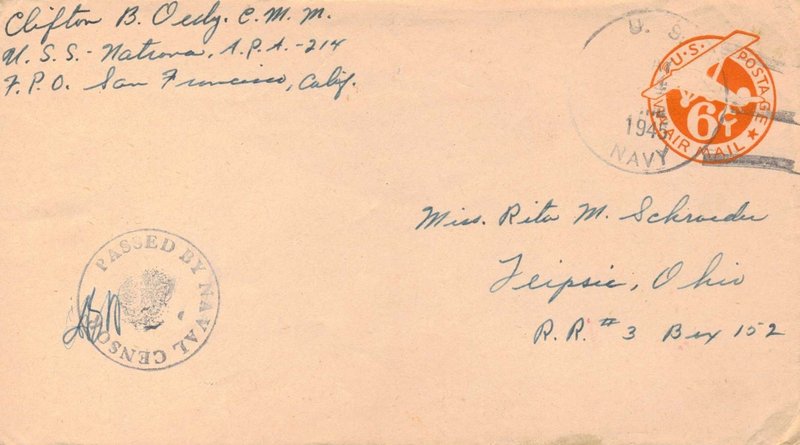 Clifton B. Oedy. C. M. M.
U. S. S. - Natrona, A. P. A. - 214
F. P. O. San Francisco, Calif.
U. S.
1945
NAVY
U.S. POSTAGE
6¢
VIA AIR MAIL
Miss. Rita M. Schroeder
Leipsic, Ohio
R. R. # 3 Box 152
PASSED BY NAVAL CENSOR